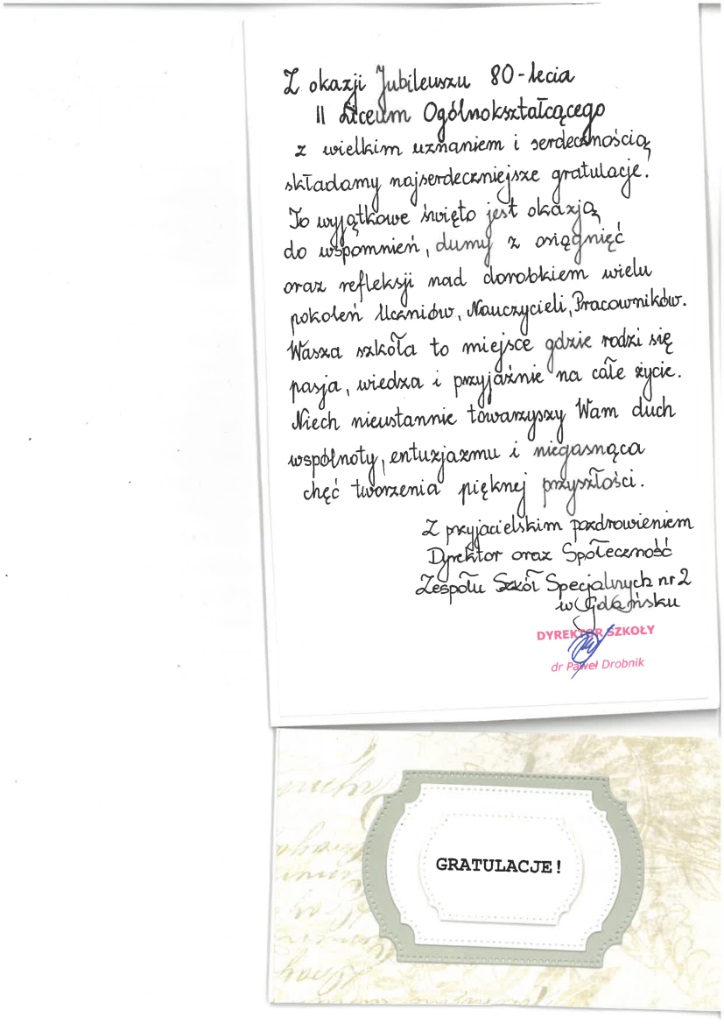 Z okazji Jubileuszu 80-lecia
II Liceum Ogólnokształcącego
z wielkim uznaniem i serdecznością
składamy najserdeczniejsze gratulacje.
To wyjątkowe święto jest okazją
do wspomnień, dumy z osiągnięć
oraz refleksji nad dorobkiem wielu
pokoleń Uczniów, Nauczycieli, Pracowników.
Wasza szkoła to miejsce gdzie rodzi się
pasja, wiedza i przyjaźnie na całe życie.
Niech nieustannie towarzyszy Wam duch
wspólnoty, entuzjazmu i niegasnąca
chęć tworzenia pięknej przyszłości.
Z przyjacielskim pozdrowieniem
Dyrektor oraz Społeczność
Zespołu Szkół Specjalnych nr 2
w Gdańsku
DYREKTOR SZKOŁY
dr Paweł Drobnik
GRATULACJE!